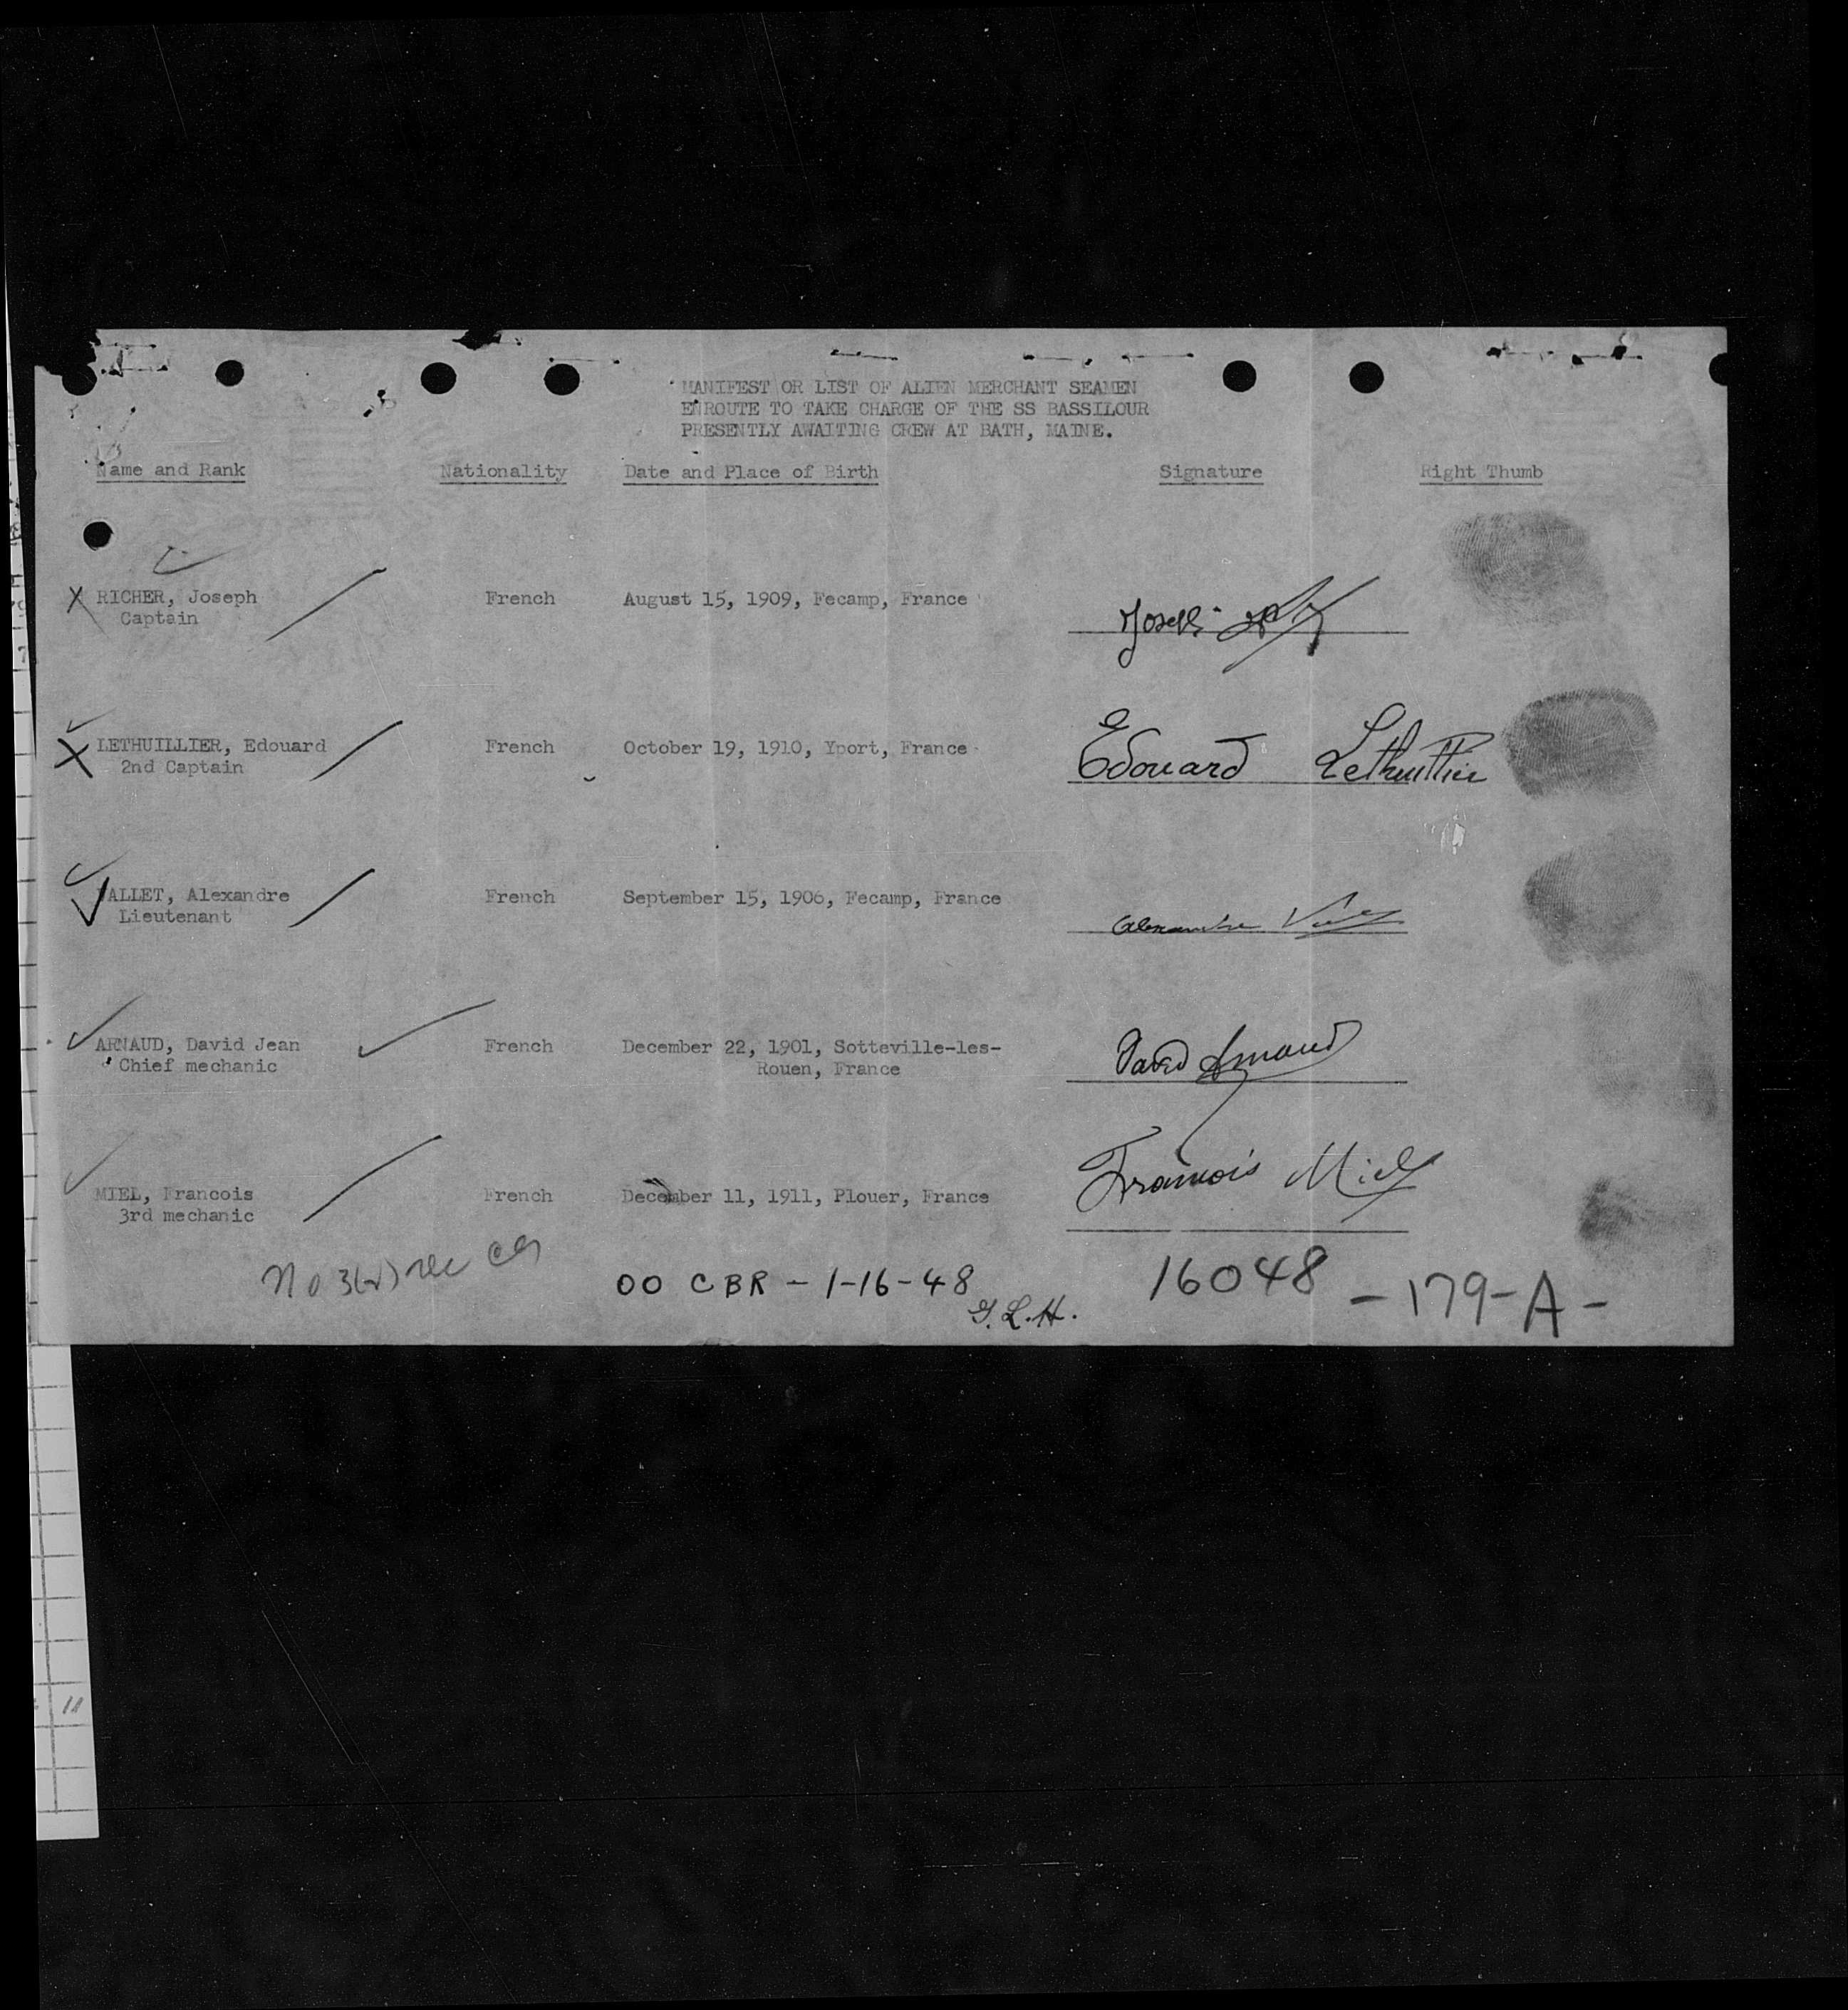 MANIFEST OR LIST OF ALIEN MERCHANT SEAMEN
ENROUTE TO TAKE CHARGE OF THE SS BASSILOUR
PRESENTLY AWAITING CREW AT BATH, MAINE.
Name and Rank Nationality Date and Place of Birth Signature Right Thumb
X RICHER, Joseph French August 15, 1909, Fecamp, France
Captain
Joseph
X LETHUILLIER, Edouard French October 19, 1910, Yport, France
2nd Captain
Edouard Lethuillier
VALLET, Alexandre French September 15, 1906, Fecamp, France
Lieutenant
Alexandre
ARNAUD, David Jean French December 22, 1901, Sotteville-les-
Chief mechanic Rouen, France
David Arnaud
MIEL, Francois French December 11, 1911, Plouer, France
3rd mechanic
Francois Miel
No 3(2) rec
OO CBR - 1-16-48
G.L.H.
16048 - 179-A -
11